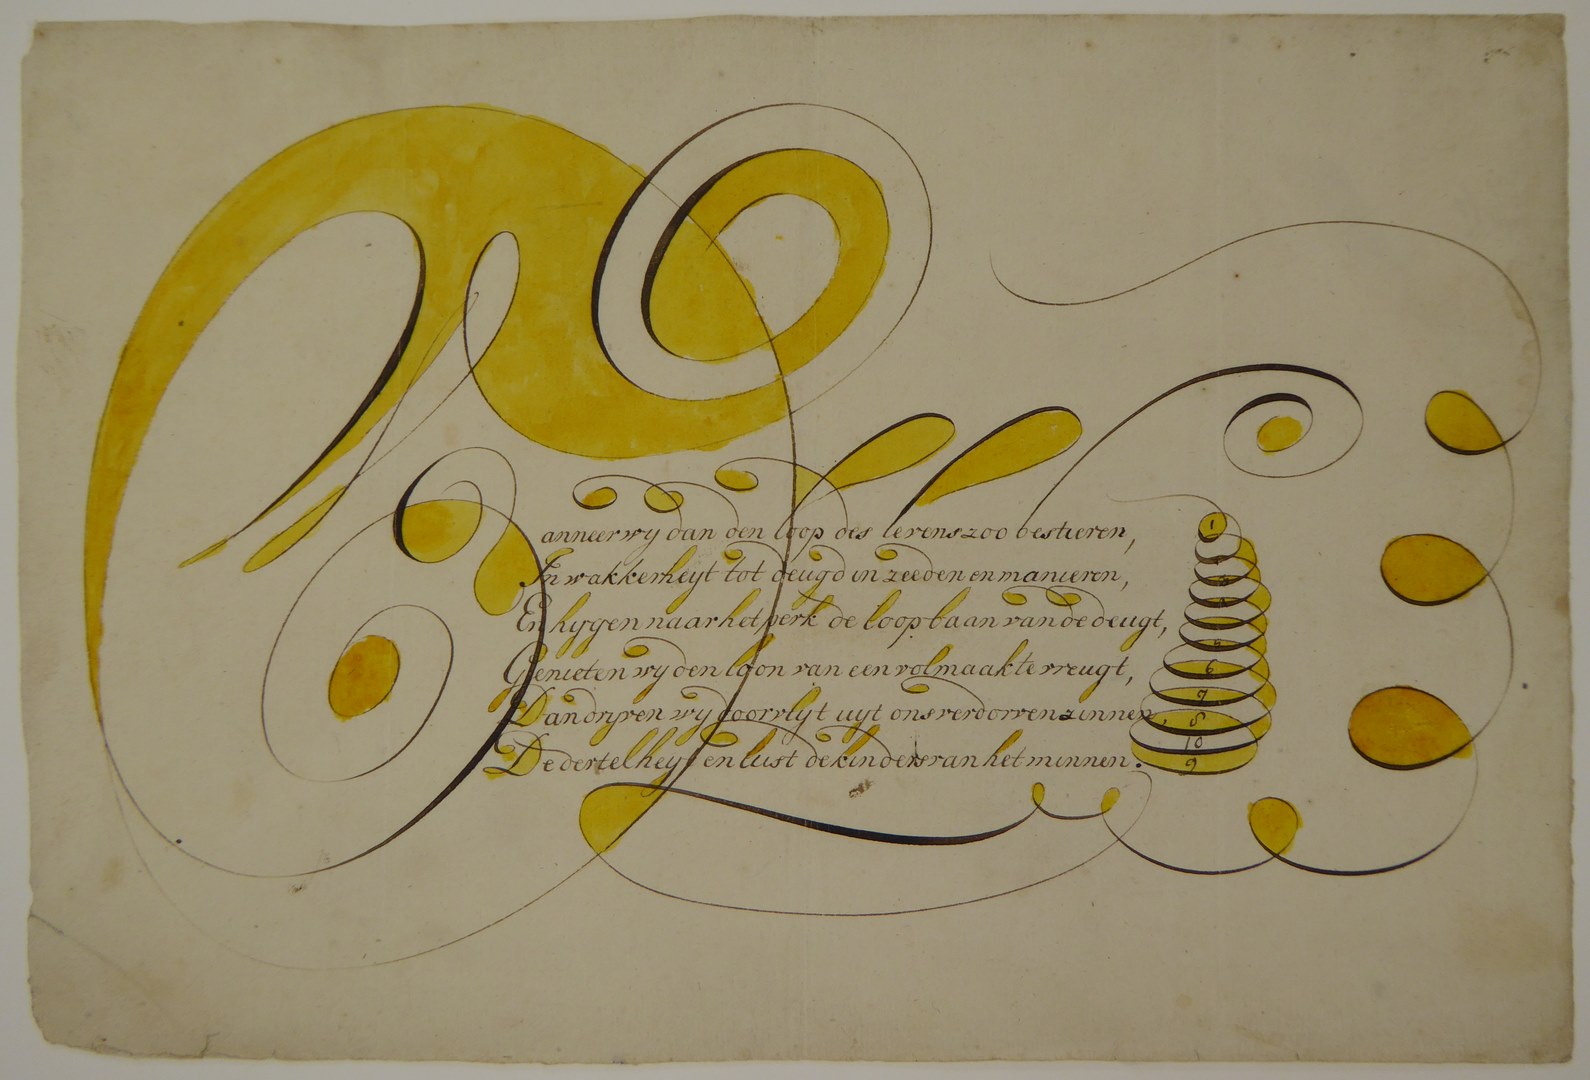 Wanneer wy dan den loop des levens zoo bestieren,
In wakkerheyt tot deugd in zeeden en manieren,
En hygen naar het perk de loopbaan van de deugt,
Genieten wy den loon van een volmaakte vreugt,
Dan dryven wy door vlyt uyt ons verdorven zinnen,
De dertelheyt en lust de kinders van het minnen.
1
5
6
7
8
10
9